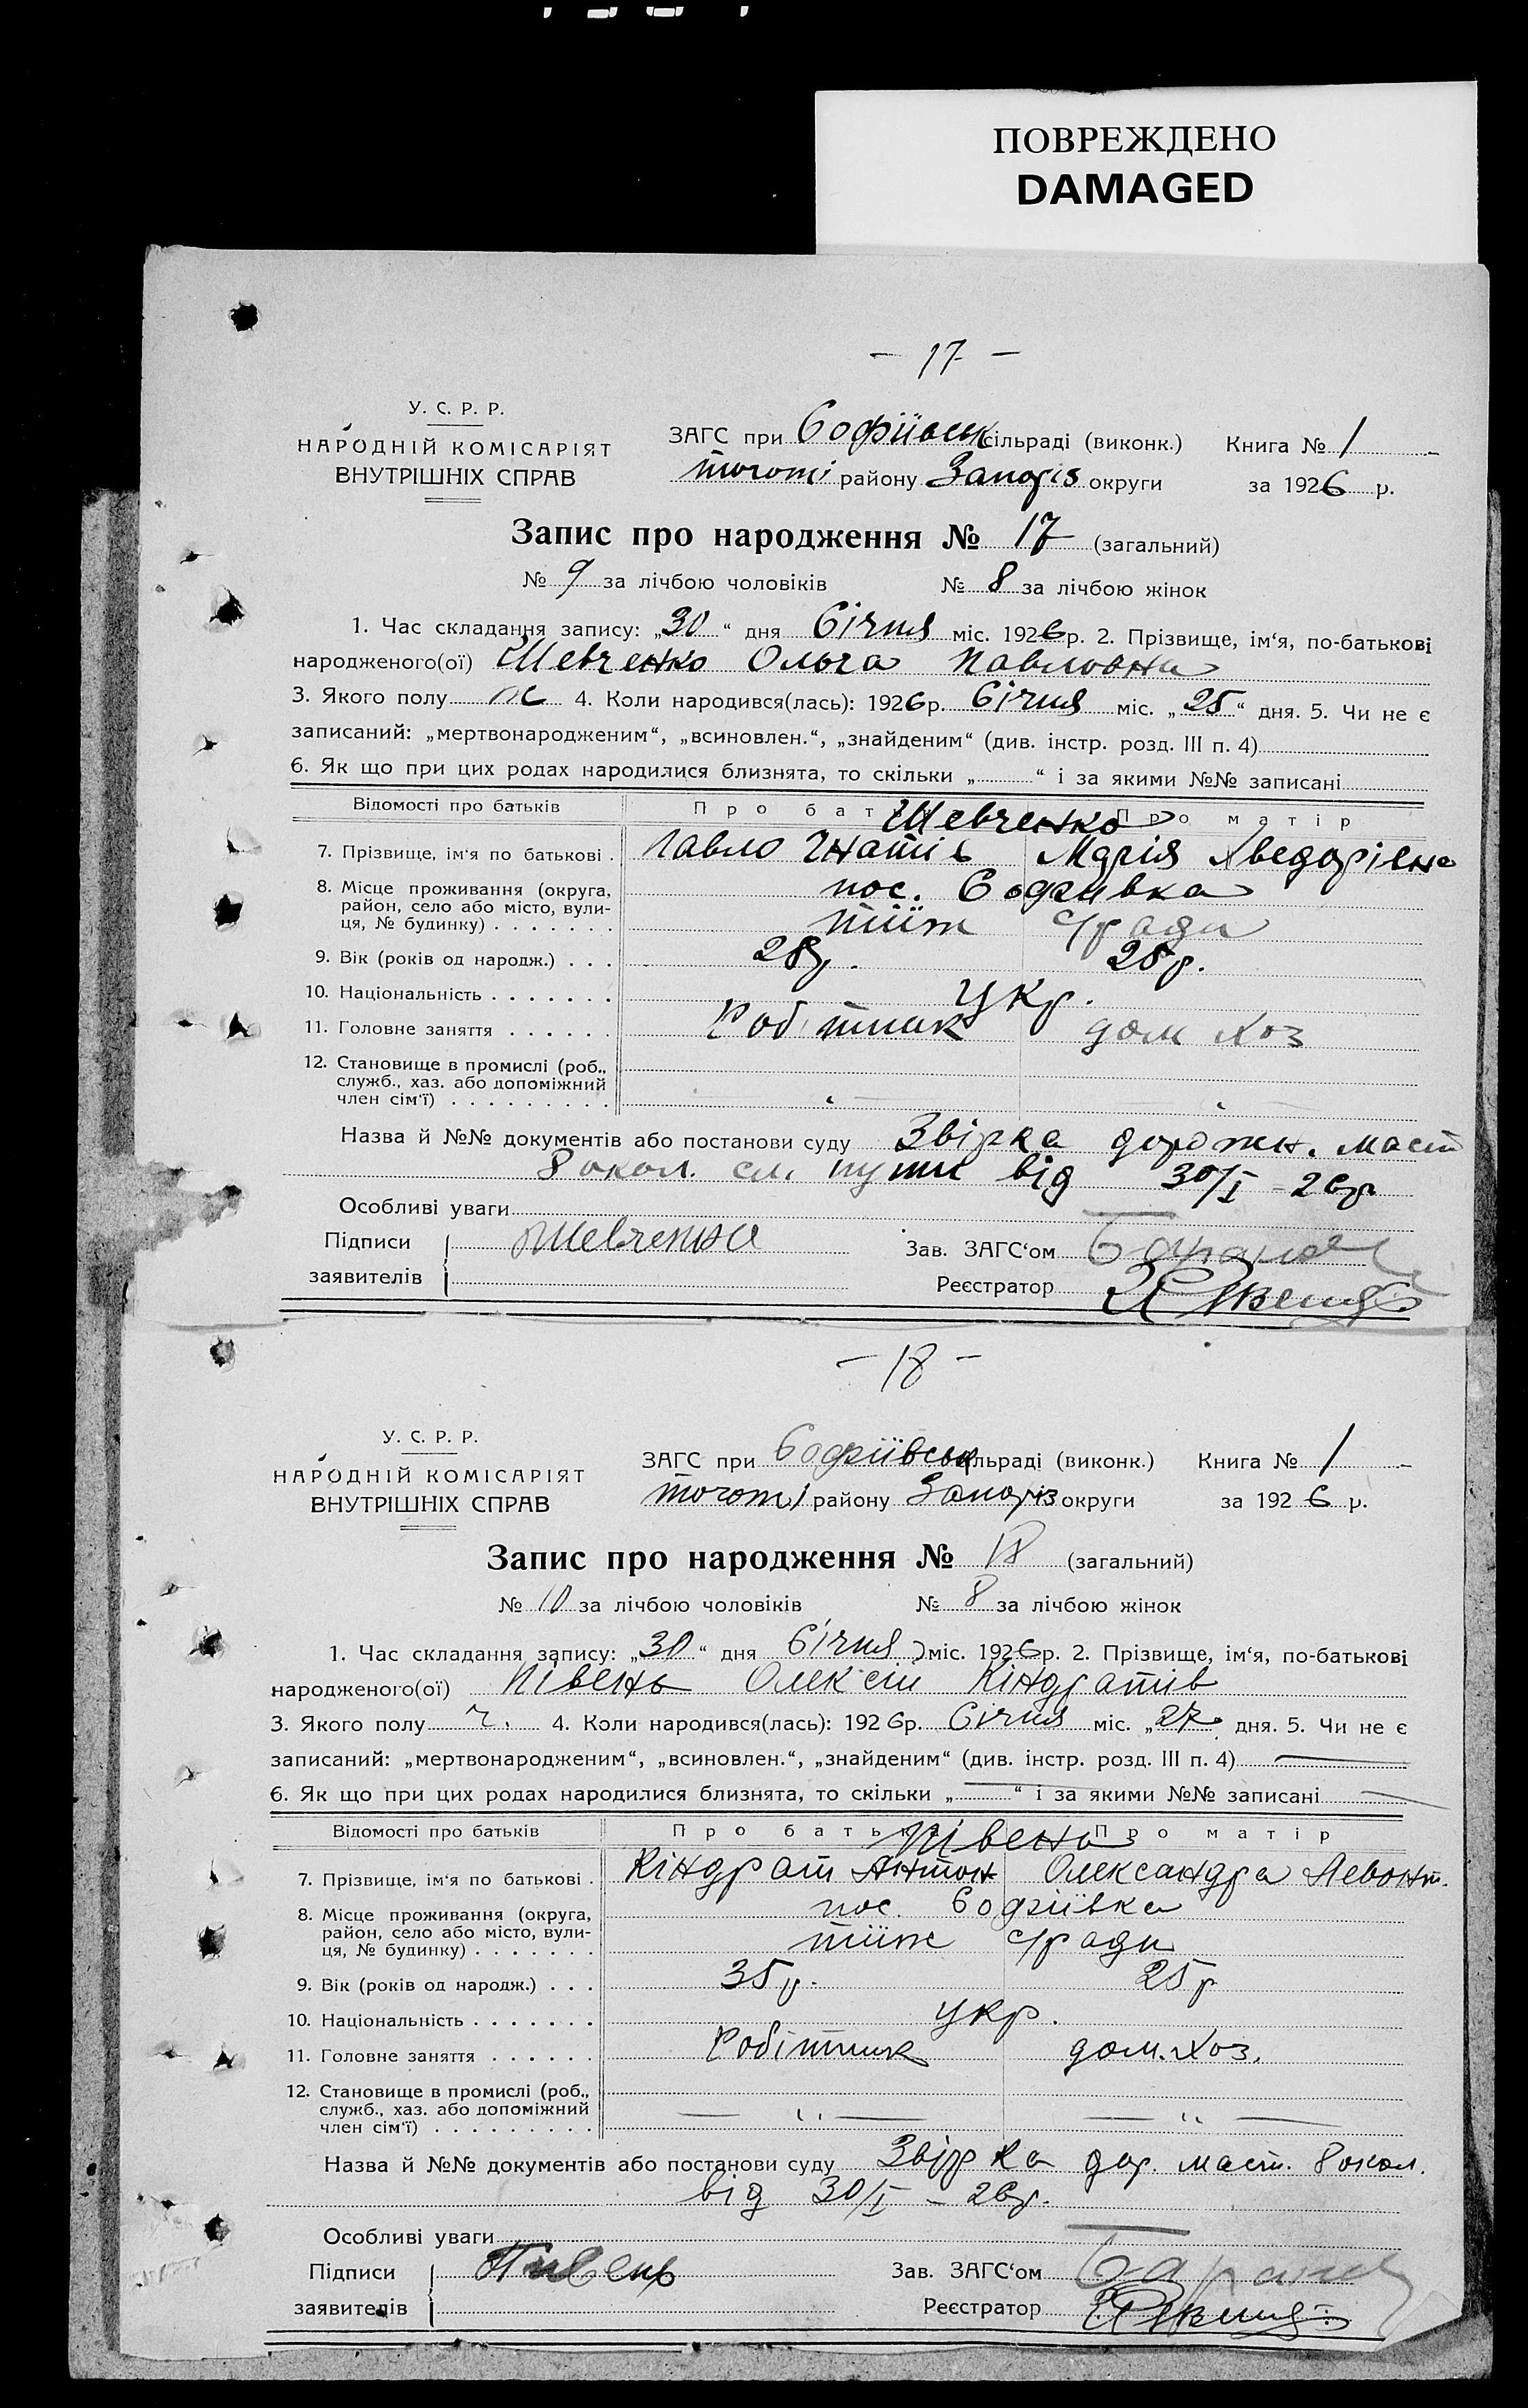 ПОВРЕЖДЕНО
DAMAGED
– 17 –
У. С. Р. Р.
НАРОДНІЙ КОМІСАРІЯТ
ВНУТРІШНІХ СПРАВ
ЗАГС при Софіївськ сільраді (виконк.) Книга № 1
району Запоріз округи за 1926 р.
Запис про народження № 17 (загальний)
№ 9 за лічбою чоловіків № 8 за лічбою жінок
1. Час складання запису: „30“ дня Січня міс. 1926 р. 2. Прізвище, ім‘я, по-батькові
народженого(ої) Шевченко Ольга Павловна
3. Якого полу ж 4. Коли народився(лась): 1926 р. Січня міс. „25“ дня. 5. Чи не є
записаний: „мертвонародженим“, „всиновлен.“, „знайденим“ (див. інстр. розд. III п. 4)
6. Як що при цих родах народилися близнята, то скільки „ “ і за якими №№ записані
Відомості про батьків Про батька Про матір
Шевченко
7. Прізвище, ім‘я по батькові . Павло Гнатів Марія Хведорівна
8. Місце проживання (округа, район, село або місто, вулиця, № будинку) . . . . . . . пос. Софіївка
тіїж с/ради
9. Вік (років од народж.) . . . 28р. 25р.
10. Національність . . . . . . . укр.
11. Головне заняття . . . . . . Робітник дом хоз
12. Становище в промислі (роб., служб., хаз. або допоміжний член сім‘ї) . . . . . . . . .
Назва й №№ документів або постанови суду Звірка дорожн. маст
8 окол. сл. пути від 30/I – 26р
Особливі уваги
Підписи Шевченко Зав. ЗАГС‘ом
заявителів Реєстратор
– 18 –
У. С. Р. Р.
НАРОДНІЙ КОМІСАРІЯТ
ВНУТРІШНІХ СПРАВ
ЗАГС при Софіївськ сільраді (виконк.) Книга № 1
району Запоріз округи за 1926 р.
Запис про народження № 18 (загальний)
№ 10 за лічбою чоловіків № 8 за лічбою жінок
1. Час складання запису: „30“ дня Січня міс. 1926 р. 2. Прізвище, ім‘я, по-батькові
народженого(ої) Півень Олексій Кіндратів
3. Якого полу ч. 4. Коли народився(лась): 1926 р. Січня міс. „27“ дня. 5. Чи не є
записаний: „мертвонародженим“, „всиновлен.“, „знайденим“ (див. інстр. розд. III п. 4)
6. Як що при цих родах народилися близнята, то скільки „ “ і за якими №№ записані
Відомості про батьків Про батька Про матір
Півень
7. Прізвище, ім‘я по батькові . Кіндрат Антон Олександра Левонт.
8. Місце проживання (округа, район, село або місто, вулиця, № будинку) . . . . . . . пос. Софіївка
тіїж с/ради
9. Вік (років од народж.) . . . 35р. 25р
10. Національність . . . . . . . укр.
11. Головне заняття . . . . . . Робітник дом. хоз.
12. Становище в промислі (роб., служб., хаз. або допоміжний член сім‘ї) . . . . . . . . .
Назва й №№ документів або постанови суду Звірка дор. маст. 8 окол.
від 30/I – 26р.
Особливі уваги
Підписи Пивень Зав. ЗАГС‘ом
заявителів Реєстратор